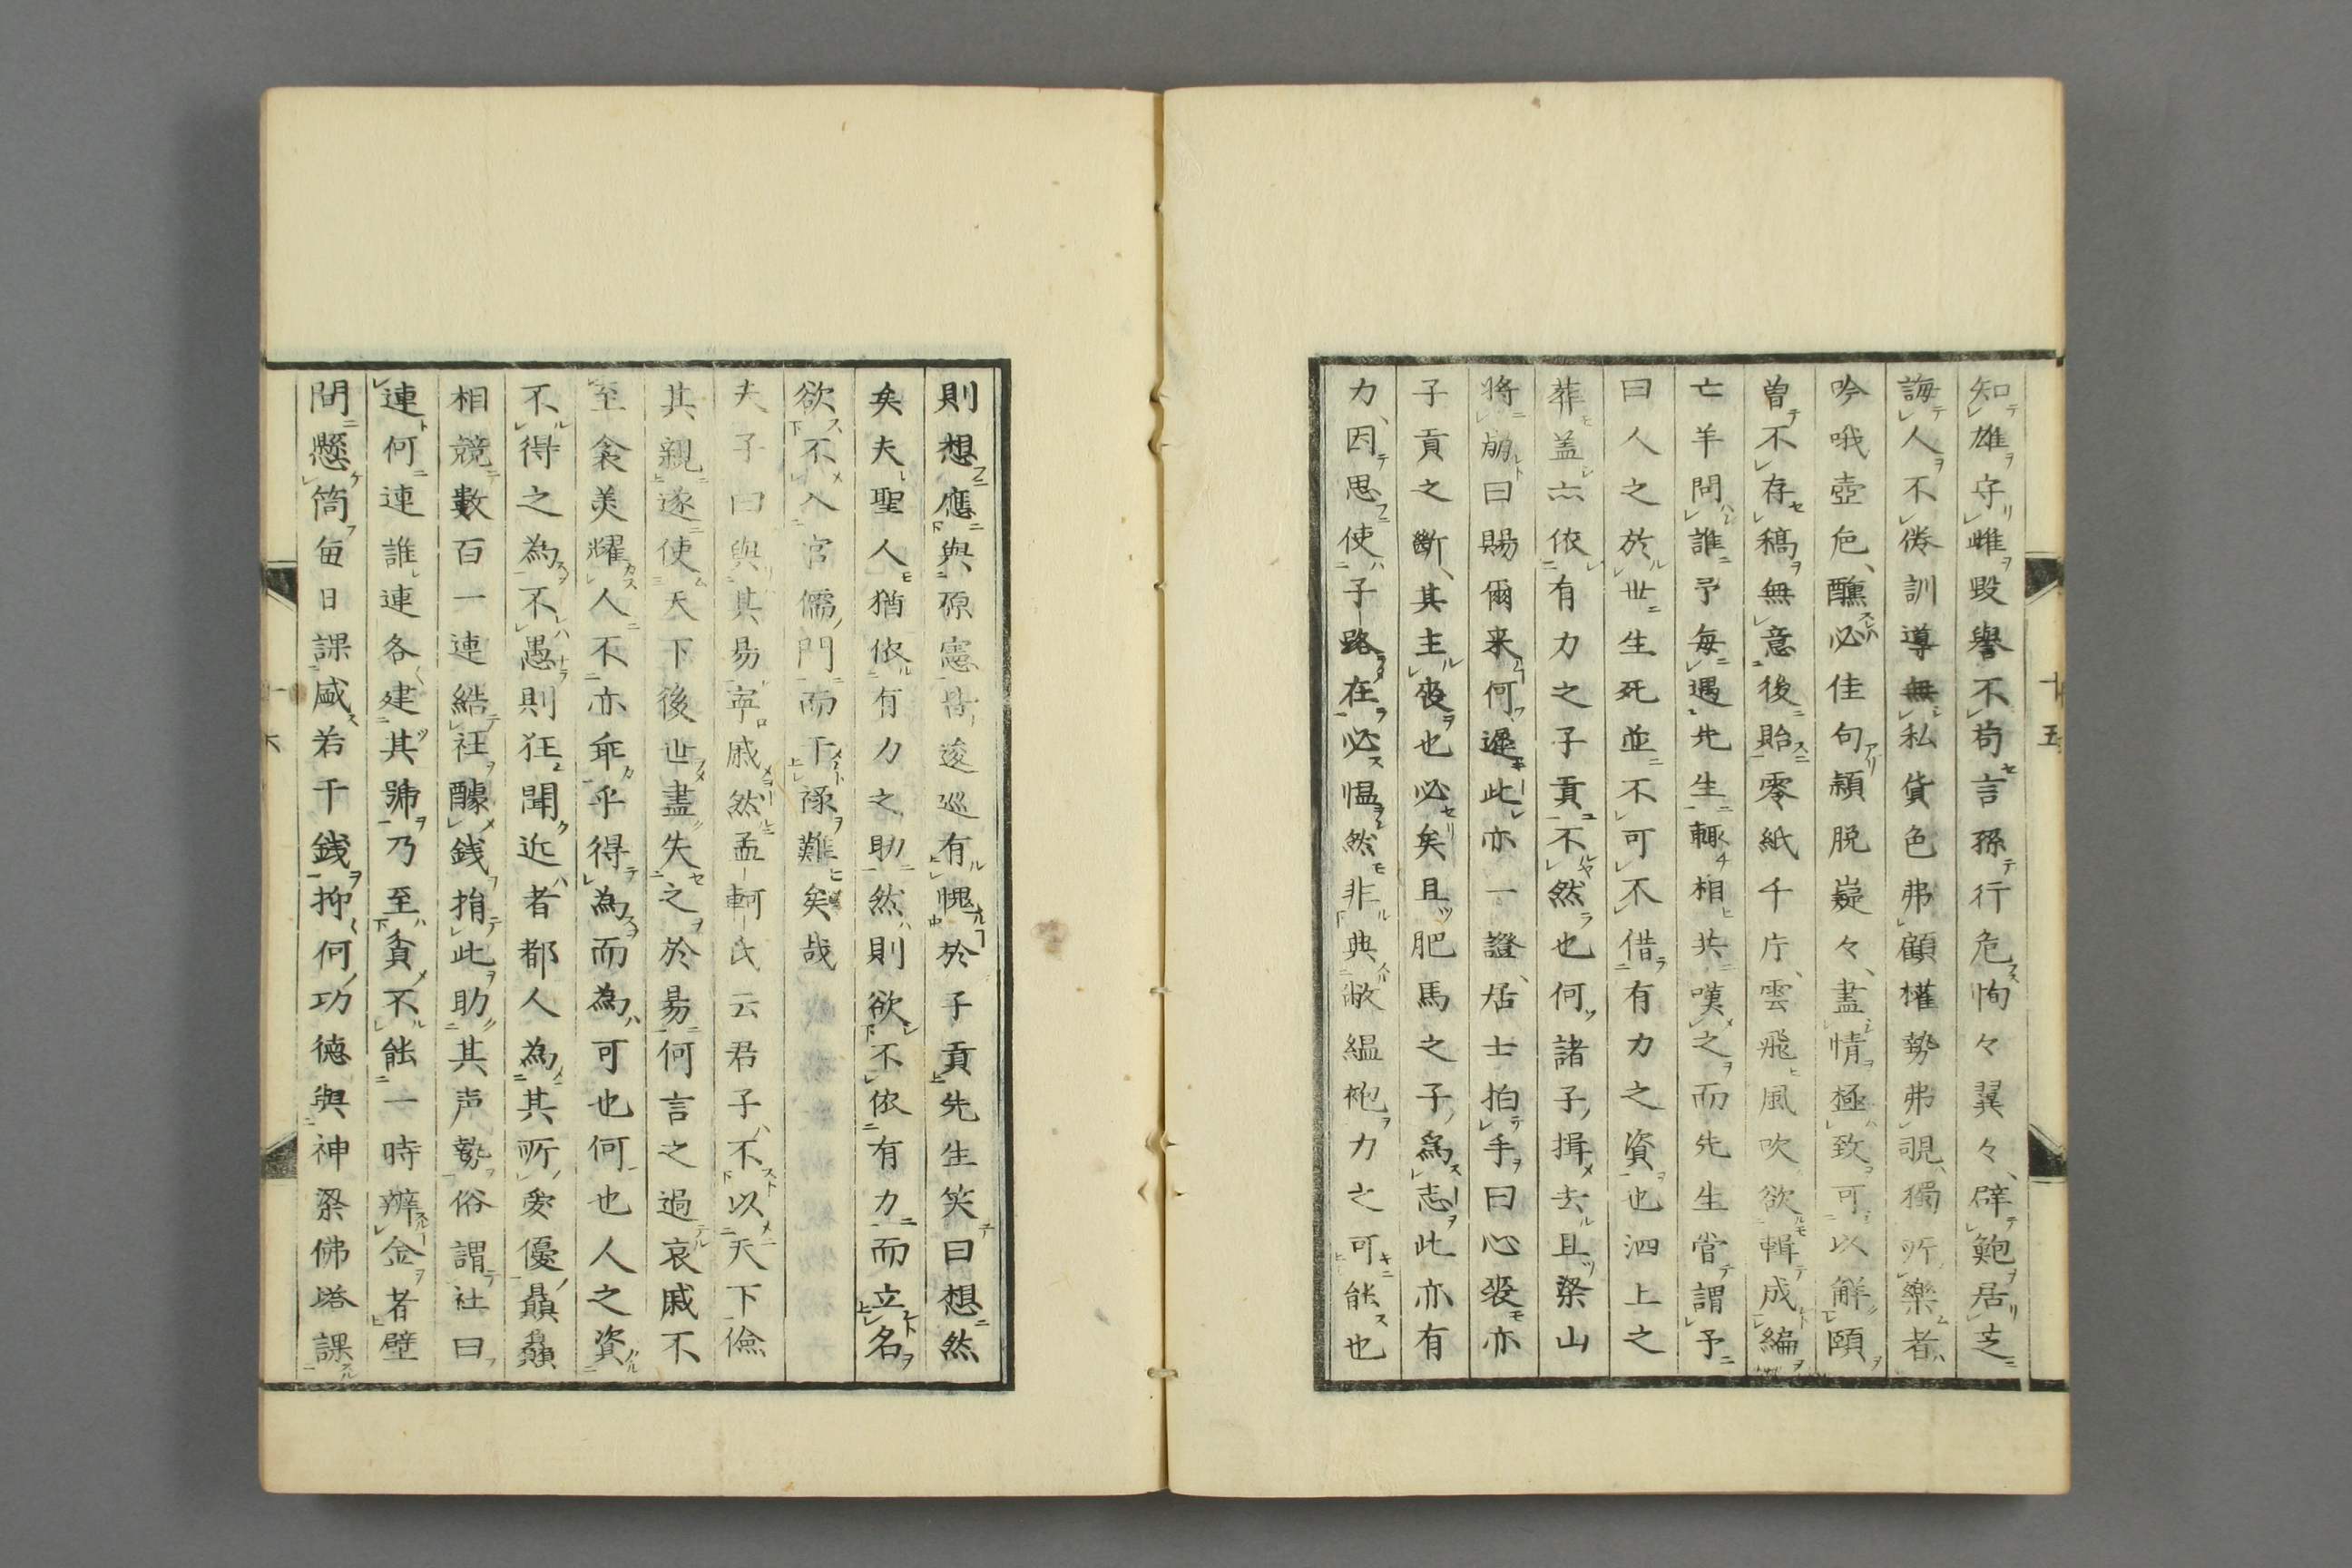 知雄守雌毀譽不苟言孫行危恂々翼々、辟鮑居芝
誨人不倦訓導無私貨色弗顧權勢弗覗、獨所樂者
吟哦壺色、醺必佳句穎脱嶷々、盡情極致可以解頤
曽不存稿無意後貽零紙千片、雲飛風吹欲輯成編
亡羊問誰予毎遇先生輒相共嘆之而先生嘗謂予
曰人之於世生死並不可不借有力之資也泗上之
葬蓋亦依有力之子子貢不然也何諸子揖去且築山
將崩曰賜爾来何遲此亦一證、居士拍手曰心喪亦
子貢之斷、其主喪也必矣且肥馬之子為志此亦有
力、因思使子路在必慍然非典敝縕袍力之可能也
十五
則想應與原憲皆逡巡有愧於子貢先生笑曰想然
矣夫聖人猶依有力之助然則欲不依有力而立名
欲不入官儒門而干祿難矣哉
夫子曰與其易寧戚然孟軻氏云君子不以天下儉
其親遂使天下後世盡失之於易何言之過哀戚不
至食美耀人不亦乖乎得為而為可也何也人之資
不得之為不愚則狂聞近者都人為其所愛優贔贔
相競數百一連結社醵錢捐此助其声勢俗謂社曰
連何連誰連各建其號乃至貧不能一時辨金者壁
間懸筒毎日課感若干錢抑何功德與神祭佛塔課
十六